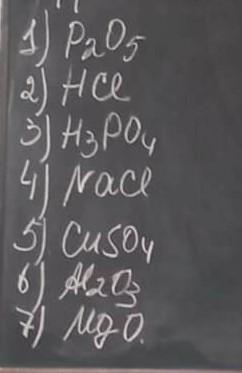 1) P₂O₅
2) HCl
3) H₃PO₄
4) NaCl
5) CuSO₄
6) Al₂O₃
7) MgO.